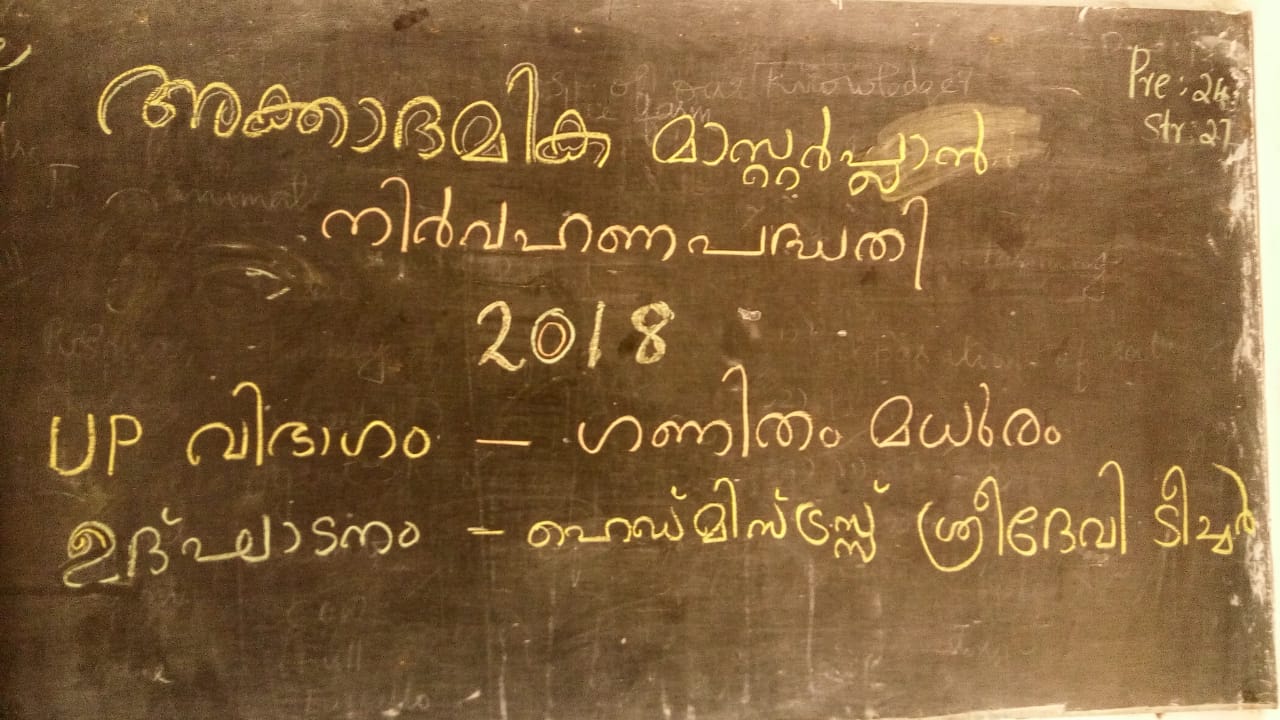 Pre: 24
Str: 27
അക്കാദമിക മാസ്റ്റർപ്ലാൻ
നിർവഹണപദ്ധതി
2018
UP വിഭാഗം – ഗണിതം മധുരം
ഉദ്ഘാടനം – ഹെഡ്മിസ്ട്രസ്സ് ശ്രീദേവി ടീച്ചർ